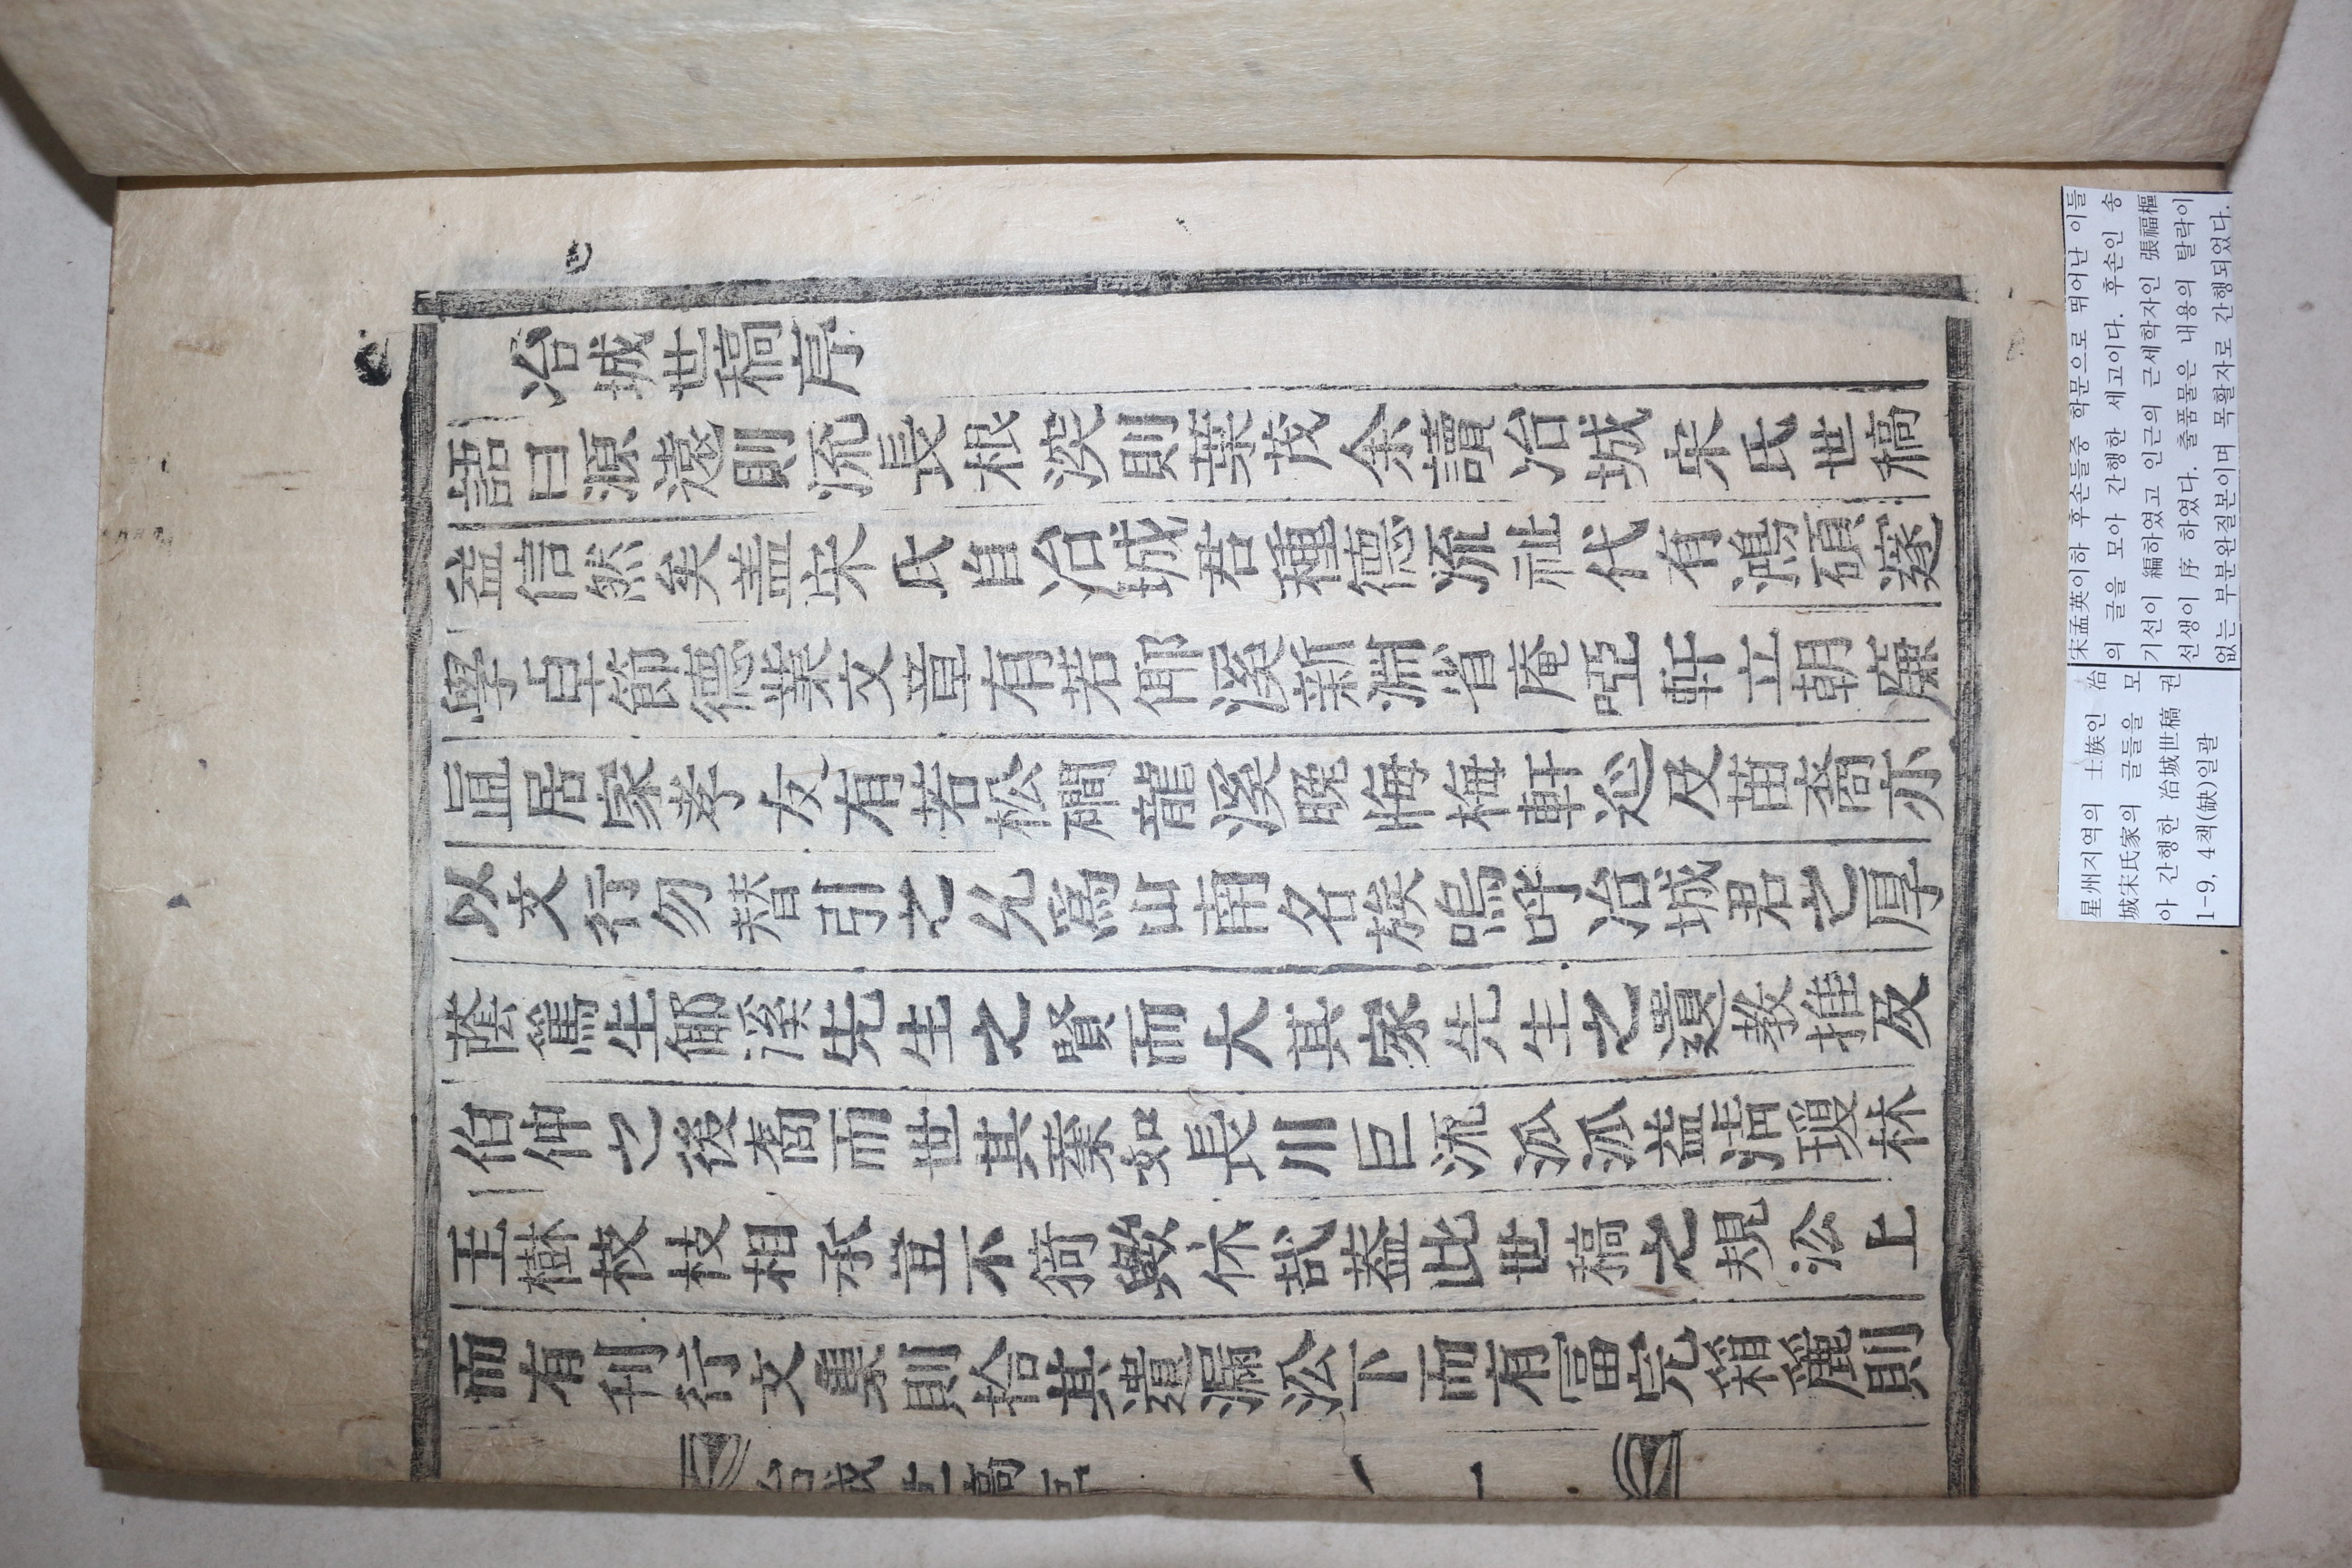 冶城世稿序
語曰源遠則流長根深則葉茂余讀冶城宋氏世稿
益信然矣盖宋氏自冶城君種德流祉代有鴻碩蹇
學卓節德業文章有若倻溪新淵省庵啞軒立朝廉
直居家孝友有若松磵龍溪晩悔梅軒延及苗裔亦
以文行勿替引之允爲山南名族嗚呼冶城君之厚
蔭篤生倻溪先生之賢而大其家先生之遺敎推及
伯仲之後裔而世其業如長川巨流泒泒益淸瓊林
玉樹枝枝相承豈不猗歟休哉盖此世稿之規㳂上
而有刊行文集則拾其遺漏㳂下而有冨完箱麗則
冶城世稿序 一
宋孟英이하 후손들중 학문으로 뛰어난 이들
의 글을 모아 간행한 세고이다. 후손인 송
기선이 編하였고 인근의 근세학자인 張福樞
선생이 序 하였다. 출품물은 내용의 탈락이
없는 부분완질본이며 목활자로 간행되었다.
星州지역의 士族인 冶
城宋氏家의 글들을 모
아 간행한 冶城世稿 권
1-9, 4책(缺)일괄